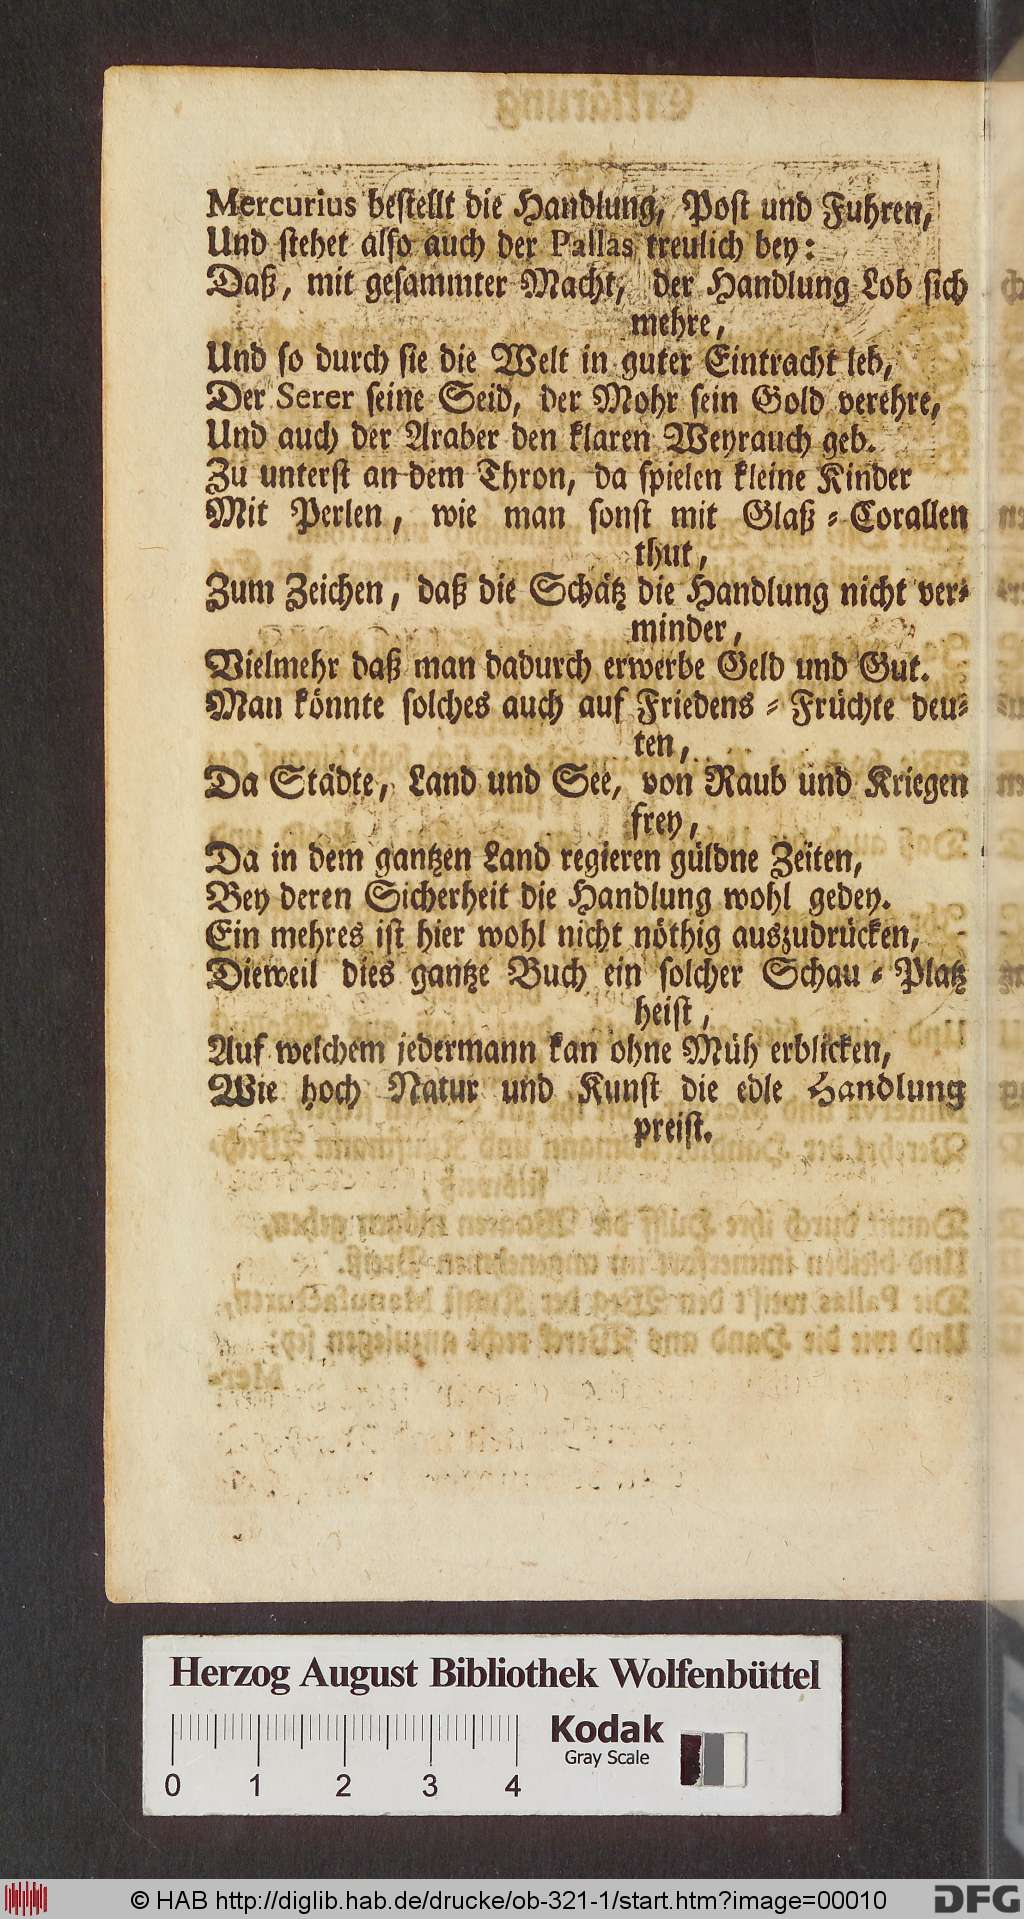 Mercurius bestellt die Handlung, Post und Fuhren,
Und stehet also auch der Pallas treulich bey:
Daß, mit gesammter Macht, der Handlung Lob sich
mehre,
Und so durch sie die Welt in guter Eintracht leb,
Der Serer seine Seid, der Mohr sein Gold verehre,
Und auch der Araber den klaren Weyrauch geb.
Zu unterst an dem Thron, da spielen kleine Kinder
Mit Perlen, wie man sonst mit Glaß-Corallen
thut,
Zum Zeichen, daß die Schätz die Handlung nicht ver-
minder,
Vielmehr daß man dadurch erwerbe Geld und Gut.
Man könnte solches auch auf Friedens-Früchte deu-
ten,
Da Städte, Land und See, von Raub und Kriegen
frey,
Da in dem gantzen Land regieren güldne Zeiten,
Bey deren Sicherheit die Handlung wohl gedey.
Ein mehres ist hier wohl nicht nöthig auszudrücken,
Dieweil dies gantze Buch ein solcher Schau-Platz
heist,
Auf welchem jedermann kan ohne Müh erblicken,
Wie hoch Natur und Kunst die edle Handlung
preist.
Herzog August Bibliothek Wolfenbüttel
Kodak
Gray Scale
0 1 2 3 4
© HAB http://diglib.hab.de/drucke/ob-321-1/start.htm?image=00010
DFG